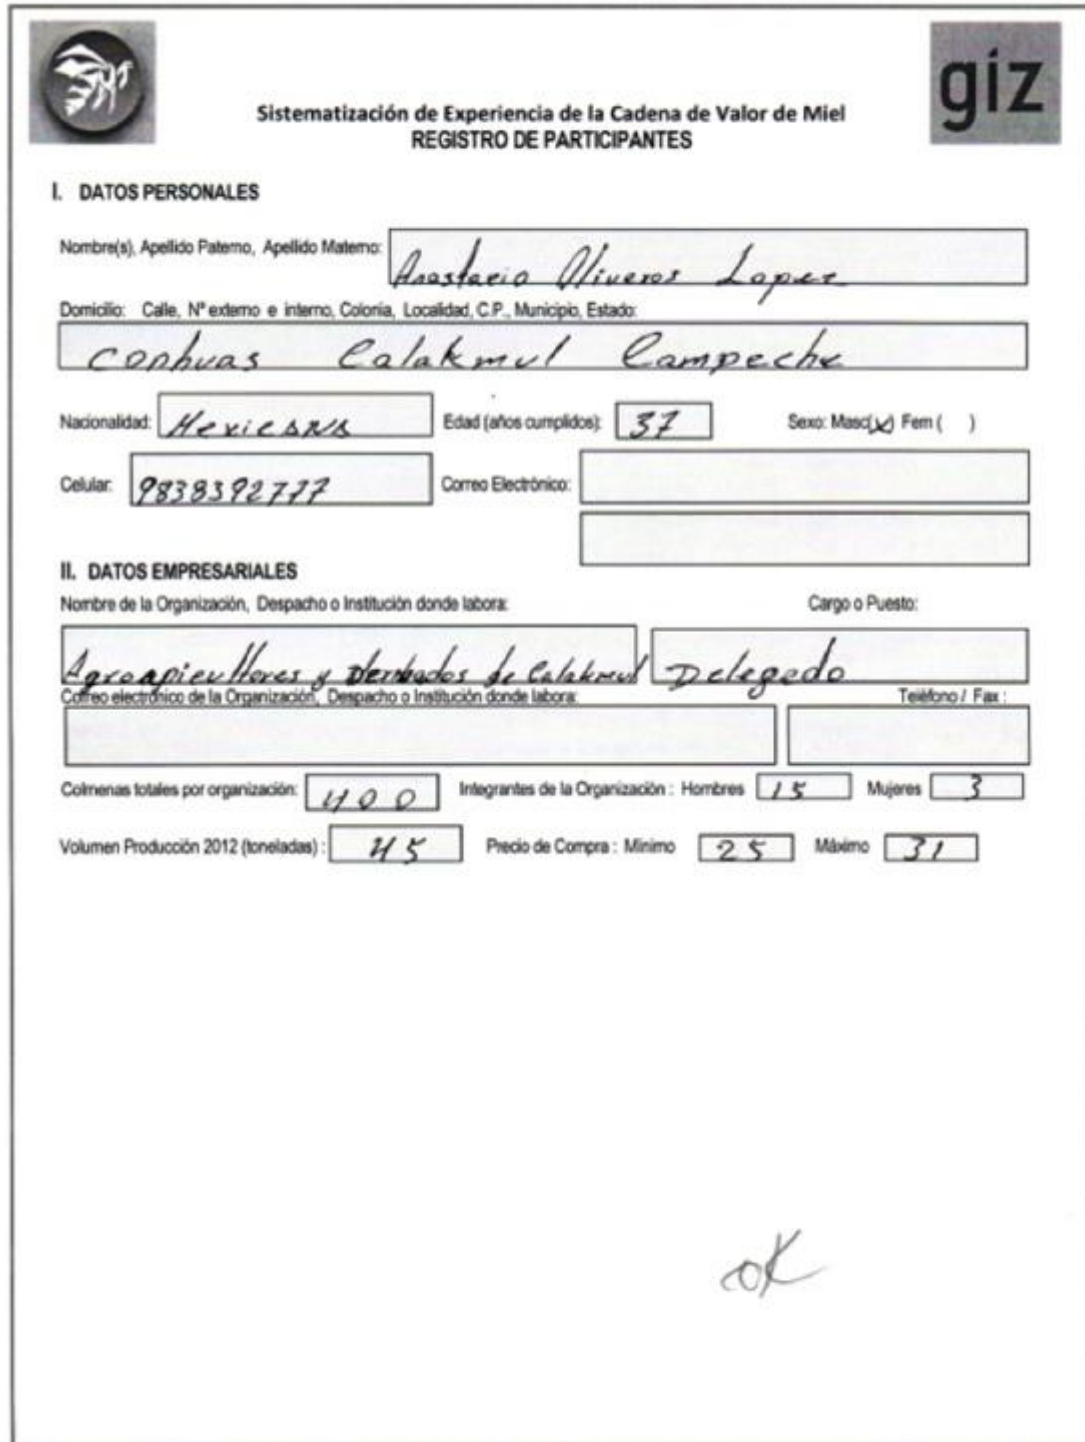 giz
Sistematización de Experiencia de la Cadena de Valor de Miel
REGISTRO DE PARTICIPANTES
I. DATOS PERSONALES
Nombre(s), Apellido Paterno, Apellido Materno: Anastacio Oliveros Lopez
Domicilio: Calle, Nº externo e interno, Colonia, Localidad, C.P., Municipio, Estado:
Conhuas Calakmul Campeche
Nacionalidad: Mexicana Edad (años cumplidos): 37 Sexo: Masc(x) Fem ( )
Celular: 9838392777 Correo Electrónico:
II. DATOS EMPRESARIALES
Nombre de la Organización, Despacho o Institución donde labora: Cargo o Puesto:
Agroapicultores y Derivados de Calakmul Delegado
Correo electrónico de la Organización, Despacho o Institución donde labora: Teléfono / Fax :
Colmenas totales por organización: 400 Integrantes de la Organización : Hombres 15 Mujeres 3
Volumen Producción 2012 (toneladas) : 45 Precio de Compra : Minimo 25 Máximo 31
ok